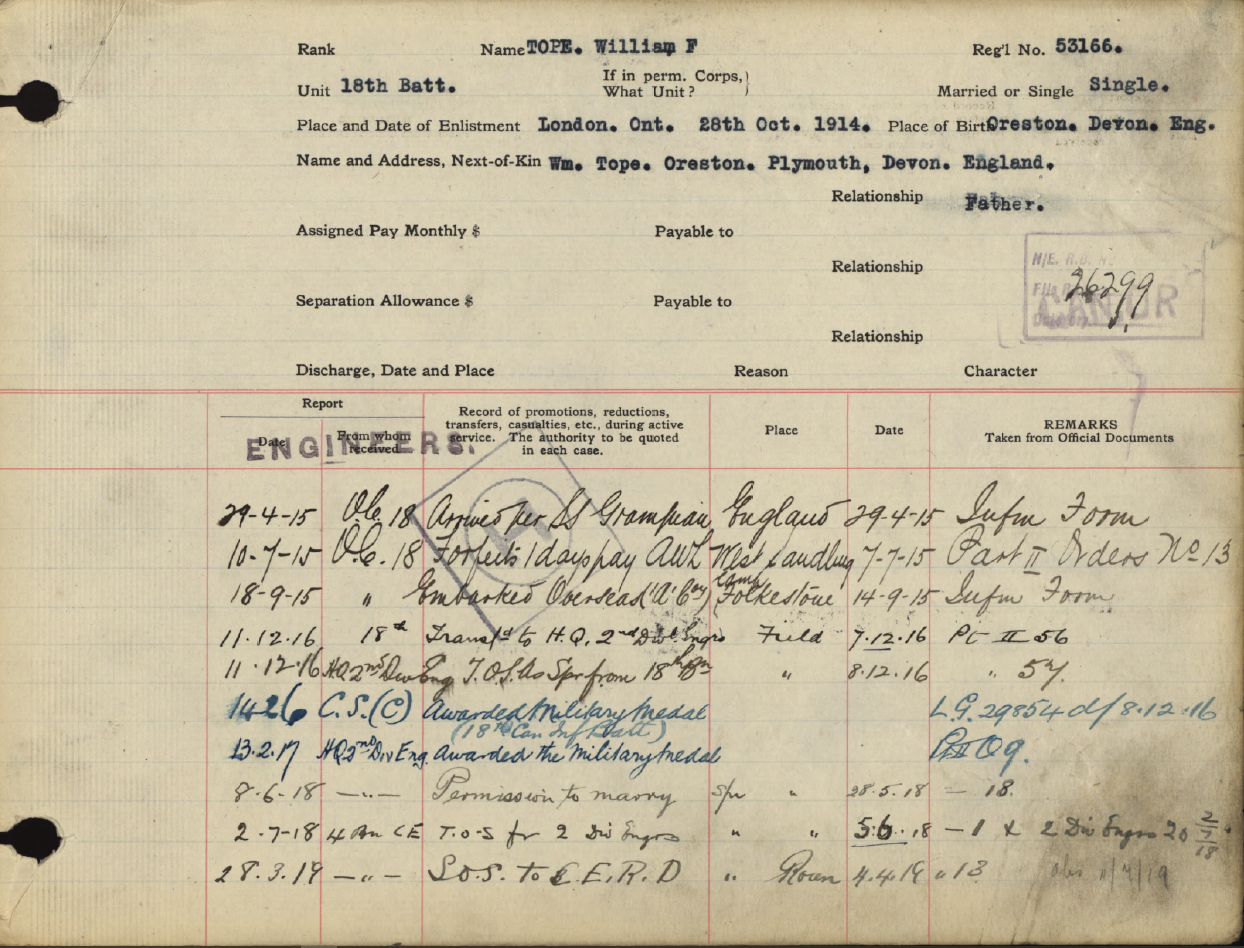 Rank Name TOPE. William F Reg'l No. 53166.
Unit 18th Batt. If in perm. Corps, What Unit? Married or Single Single.
Place and Date of Enlistment London. Ont. 28th Oct. 1914. Place of Birth Oreston. Devon. Eng.
Name and Address, Next-of-Kin Wm. Tope. Oreston. Plymouth, Devon. England.
Relationship Father.
Assigned Pay Monthly $ Payable to
Relationship
Separation Allowance $ Payable to
Relationship
N/E. R.D.
26299
CAN
Discharge, Date and Place Reason Character
Report
Date From whom received
Record of promotions, reductions, transfers, casualties, etc., during active service. The authority to be quoted in each case.
Place Date
REMARKS
Taken from Official Documents
ENGINEERS.
29-4-15 O.C. 18 Arrived per SS Grampian England 29-4-15 Infm Form
10-7-15 O.C. 18 Forfeits 1 days pay AWL West Sandling Camp 7-7-15 Part II Orders No 13
18-9-15 " Embarked Overseas ("A" Coy) Folkestone 14-9-15 Infm Form
11.12.16 18th Transf'd to H.Q. 2nd Divl Engrs Field 7.12.16 Pt II 56
11.12.16 HQ 2nd Div Eng T.O.S. As Spr from 18th Bn " 8.12.16 " 57.
1426 C.S.(C) Awarded Military Medal L.G. 29854 d/ 8.12.16
(18th Can Inf Batt)
13.2.17 HQ 2nd Div Eng. Awarded the Military Medal O 9.
8-6-18 —"— Permission to marry Spr " 28.5.18 — 18.
2-7-18 4 Bn CE T.O.S fr 2 Div Engrs " " 5.6.18 — 1 & 2 Div Engrs 20 2/7/18
28.3.19 —"— S.O.S. to C.E.R.D " Rouen 4.4.19 " 13 11/4/19